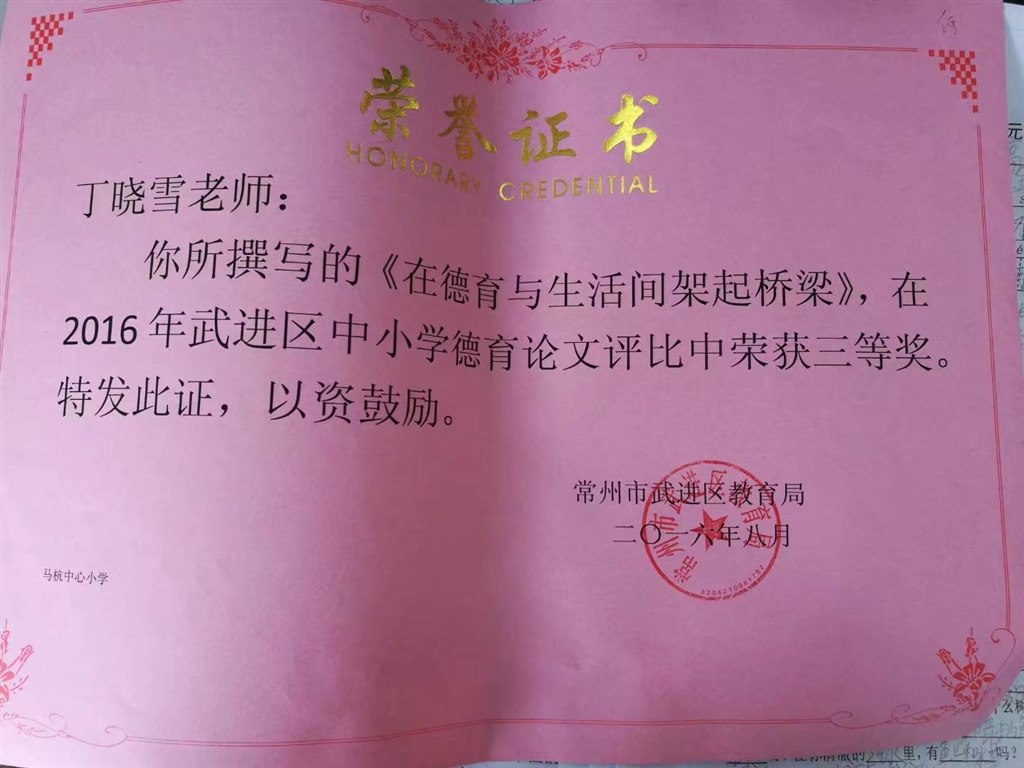 荣誉证书
HONORARY CREDENTIAL
丁晓雪老师：
你所撰写的《在德育与生活间架起桥梁》，在
2016年武进区中小学德育论文评比中荣获三等奖。
特发此证，以资鼓励。
常州市武进区教育局
二〇一六年八月
常州市武进区教育局
3204210081287
马杭中心小学
元
什么
里，有
吗？